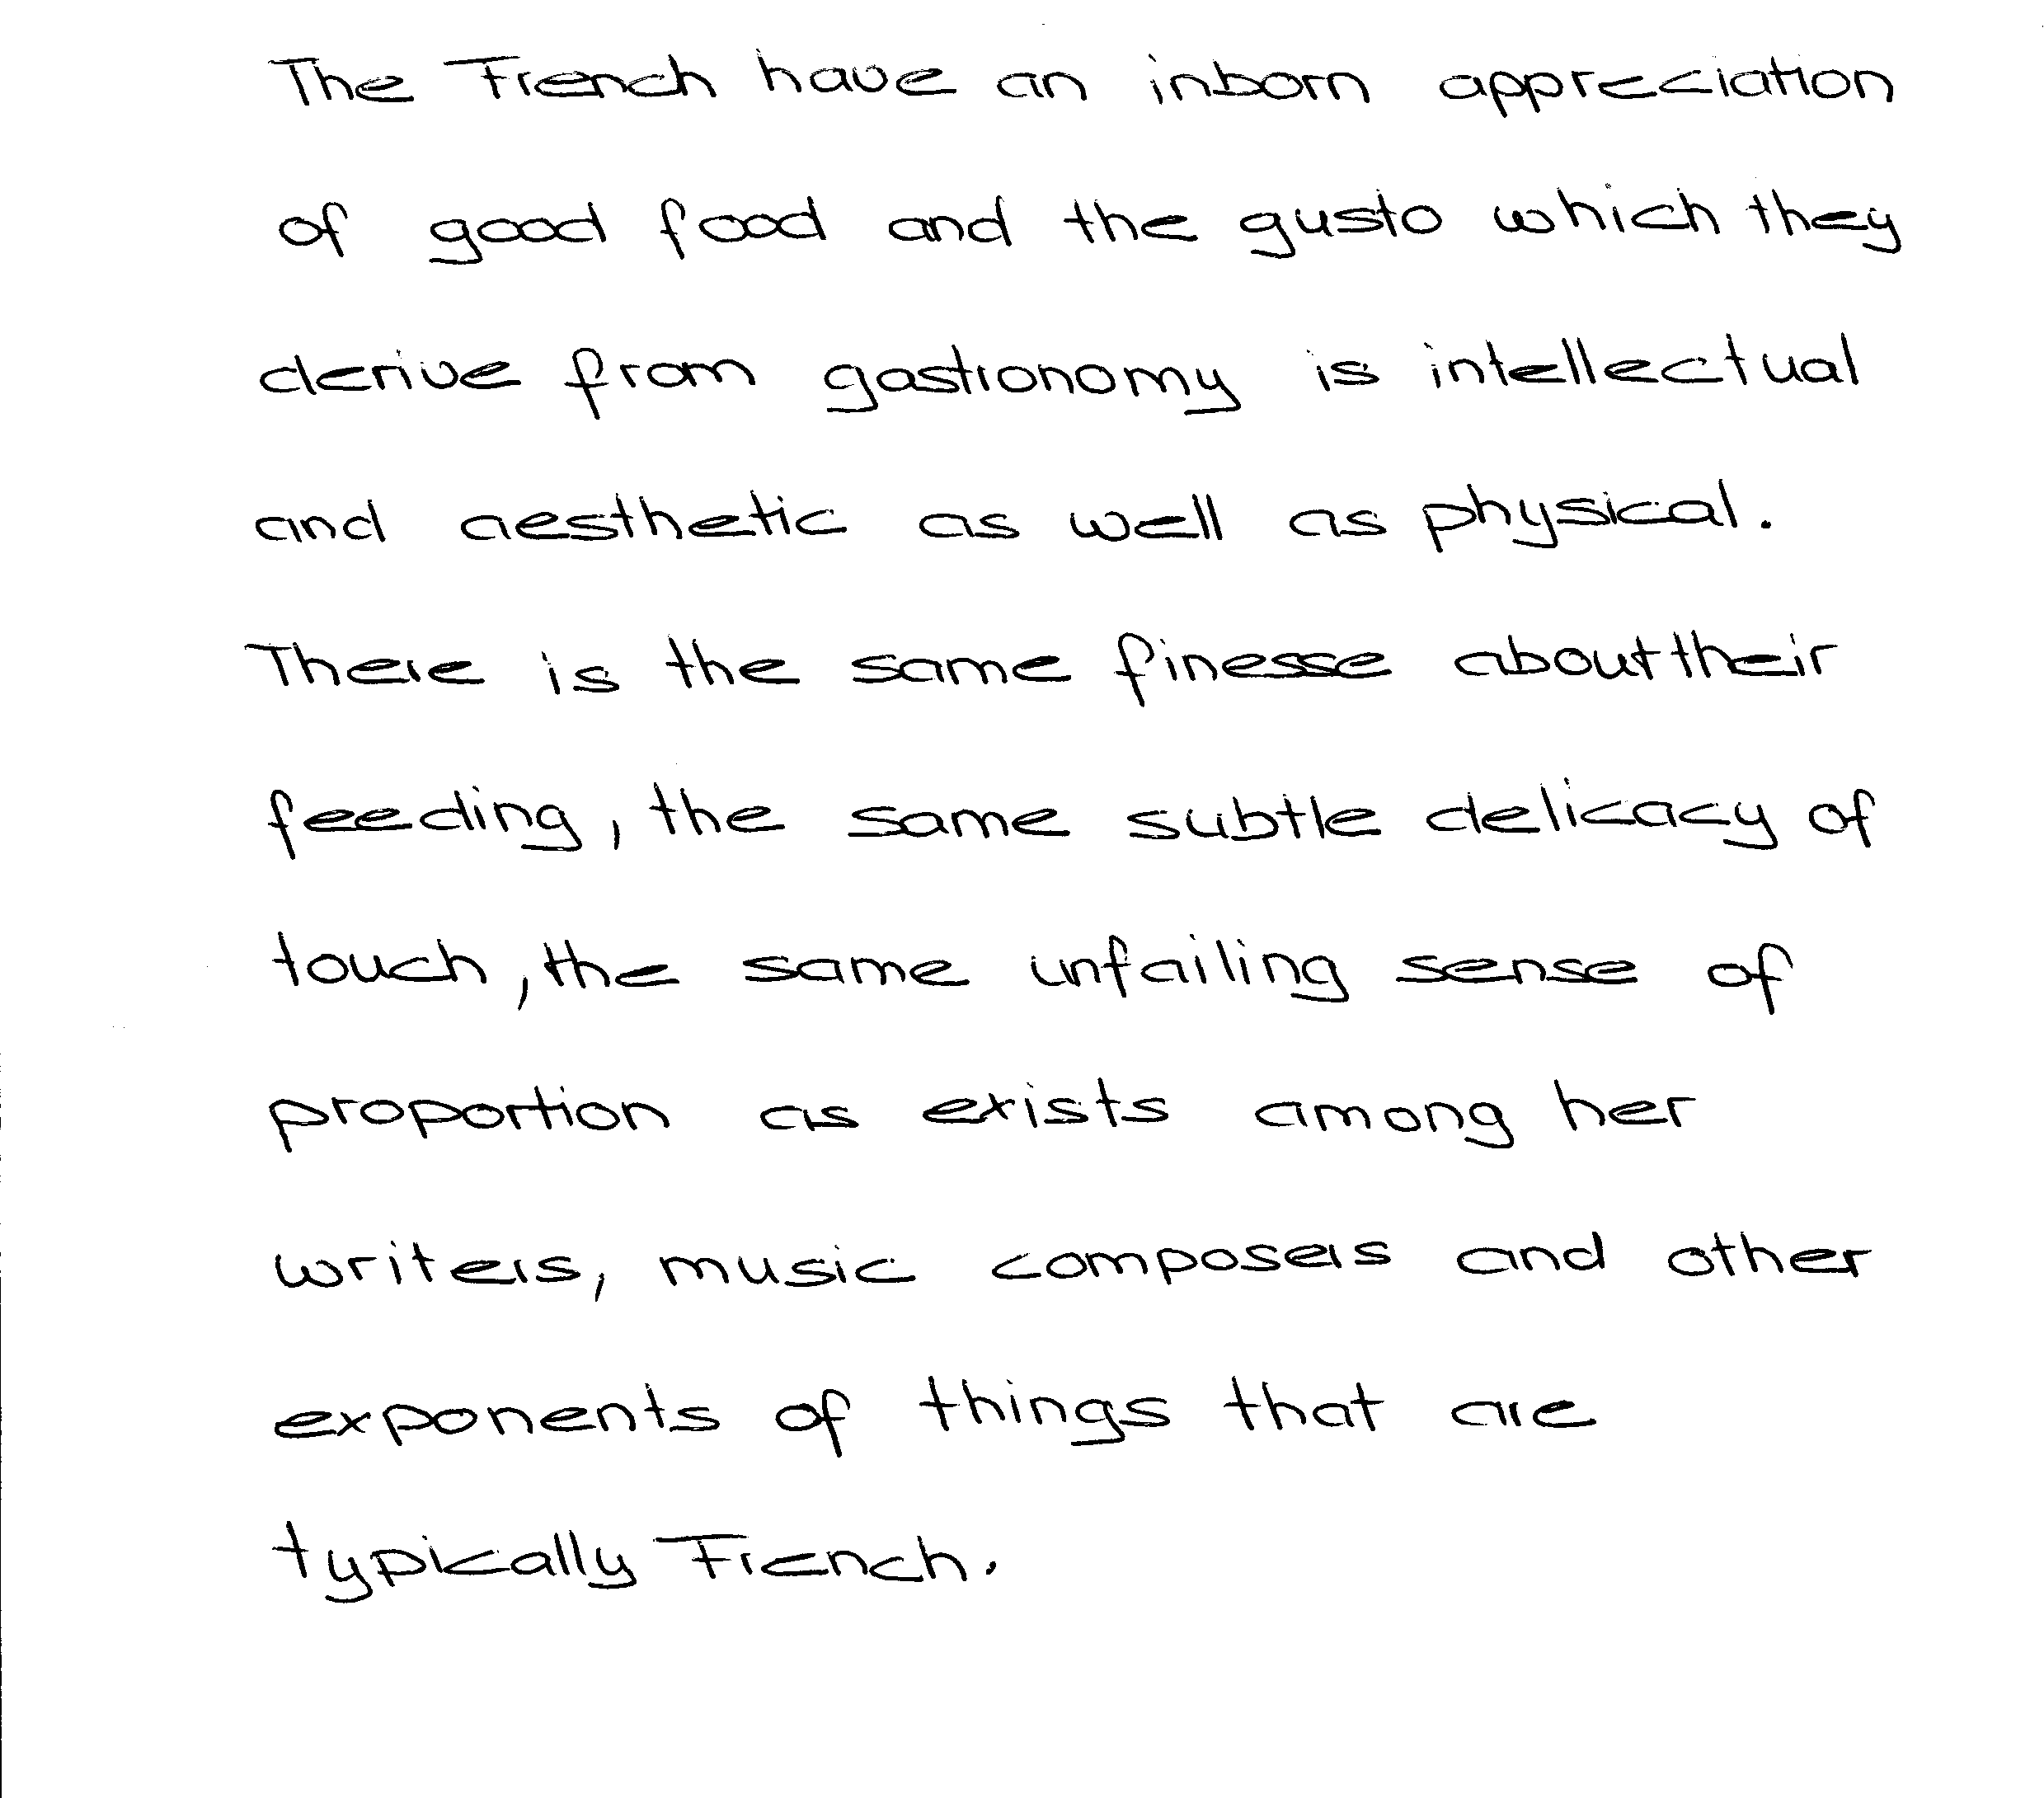 The French have an inborn appreciation
of good food and the gusto which they
derive from gastronomy is intellectual
and aesthetic as well as physical.
There is the same finesse about their
feeding, the same subtle delicacy of
touch, the same unfailing sense of
proportion as exists among her
writers, music composers and other
exponents of things that are
typically French.